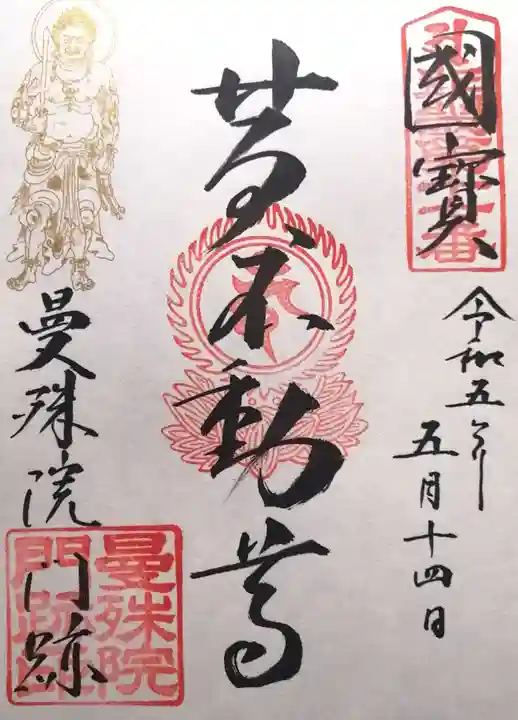 國寶
令和五年
五月十四日
黄不動尊
曼殊院
門跡
曼殊院
門跡